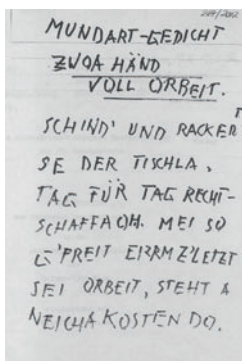 224/2012
MUNDART-GEDICHT
ZWOA HÄND
VOLL ORBEIT.
SCHIND' UND RACKER T
SE DER TISCHLA,
TAG FÜR TAG RECHT-
SCHAFFA OH. MEI SO
G'FREIT EIRRM Z'LETZT
SEI ORBEIT, STEHT A
NEICHA KOSTEN DO.